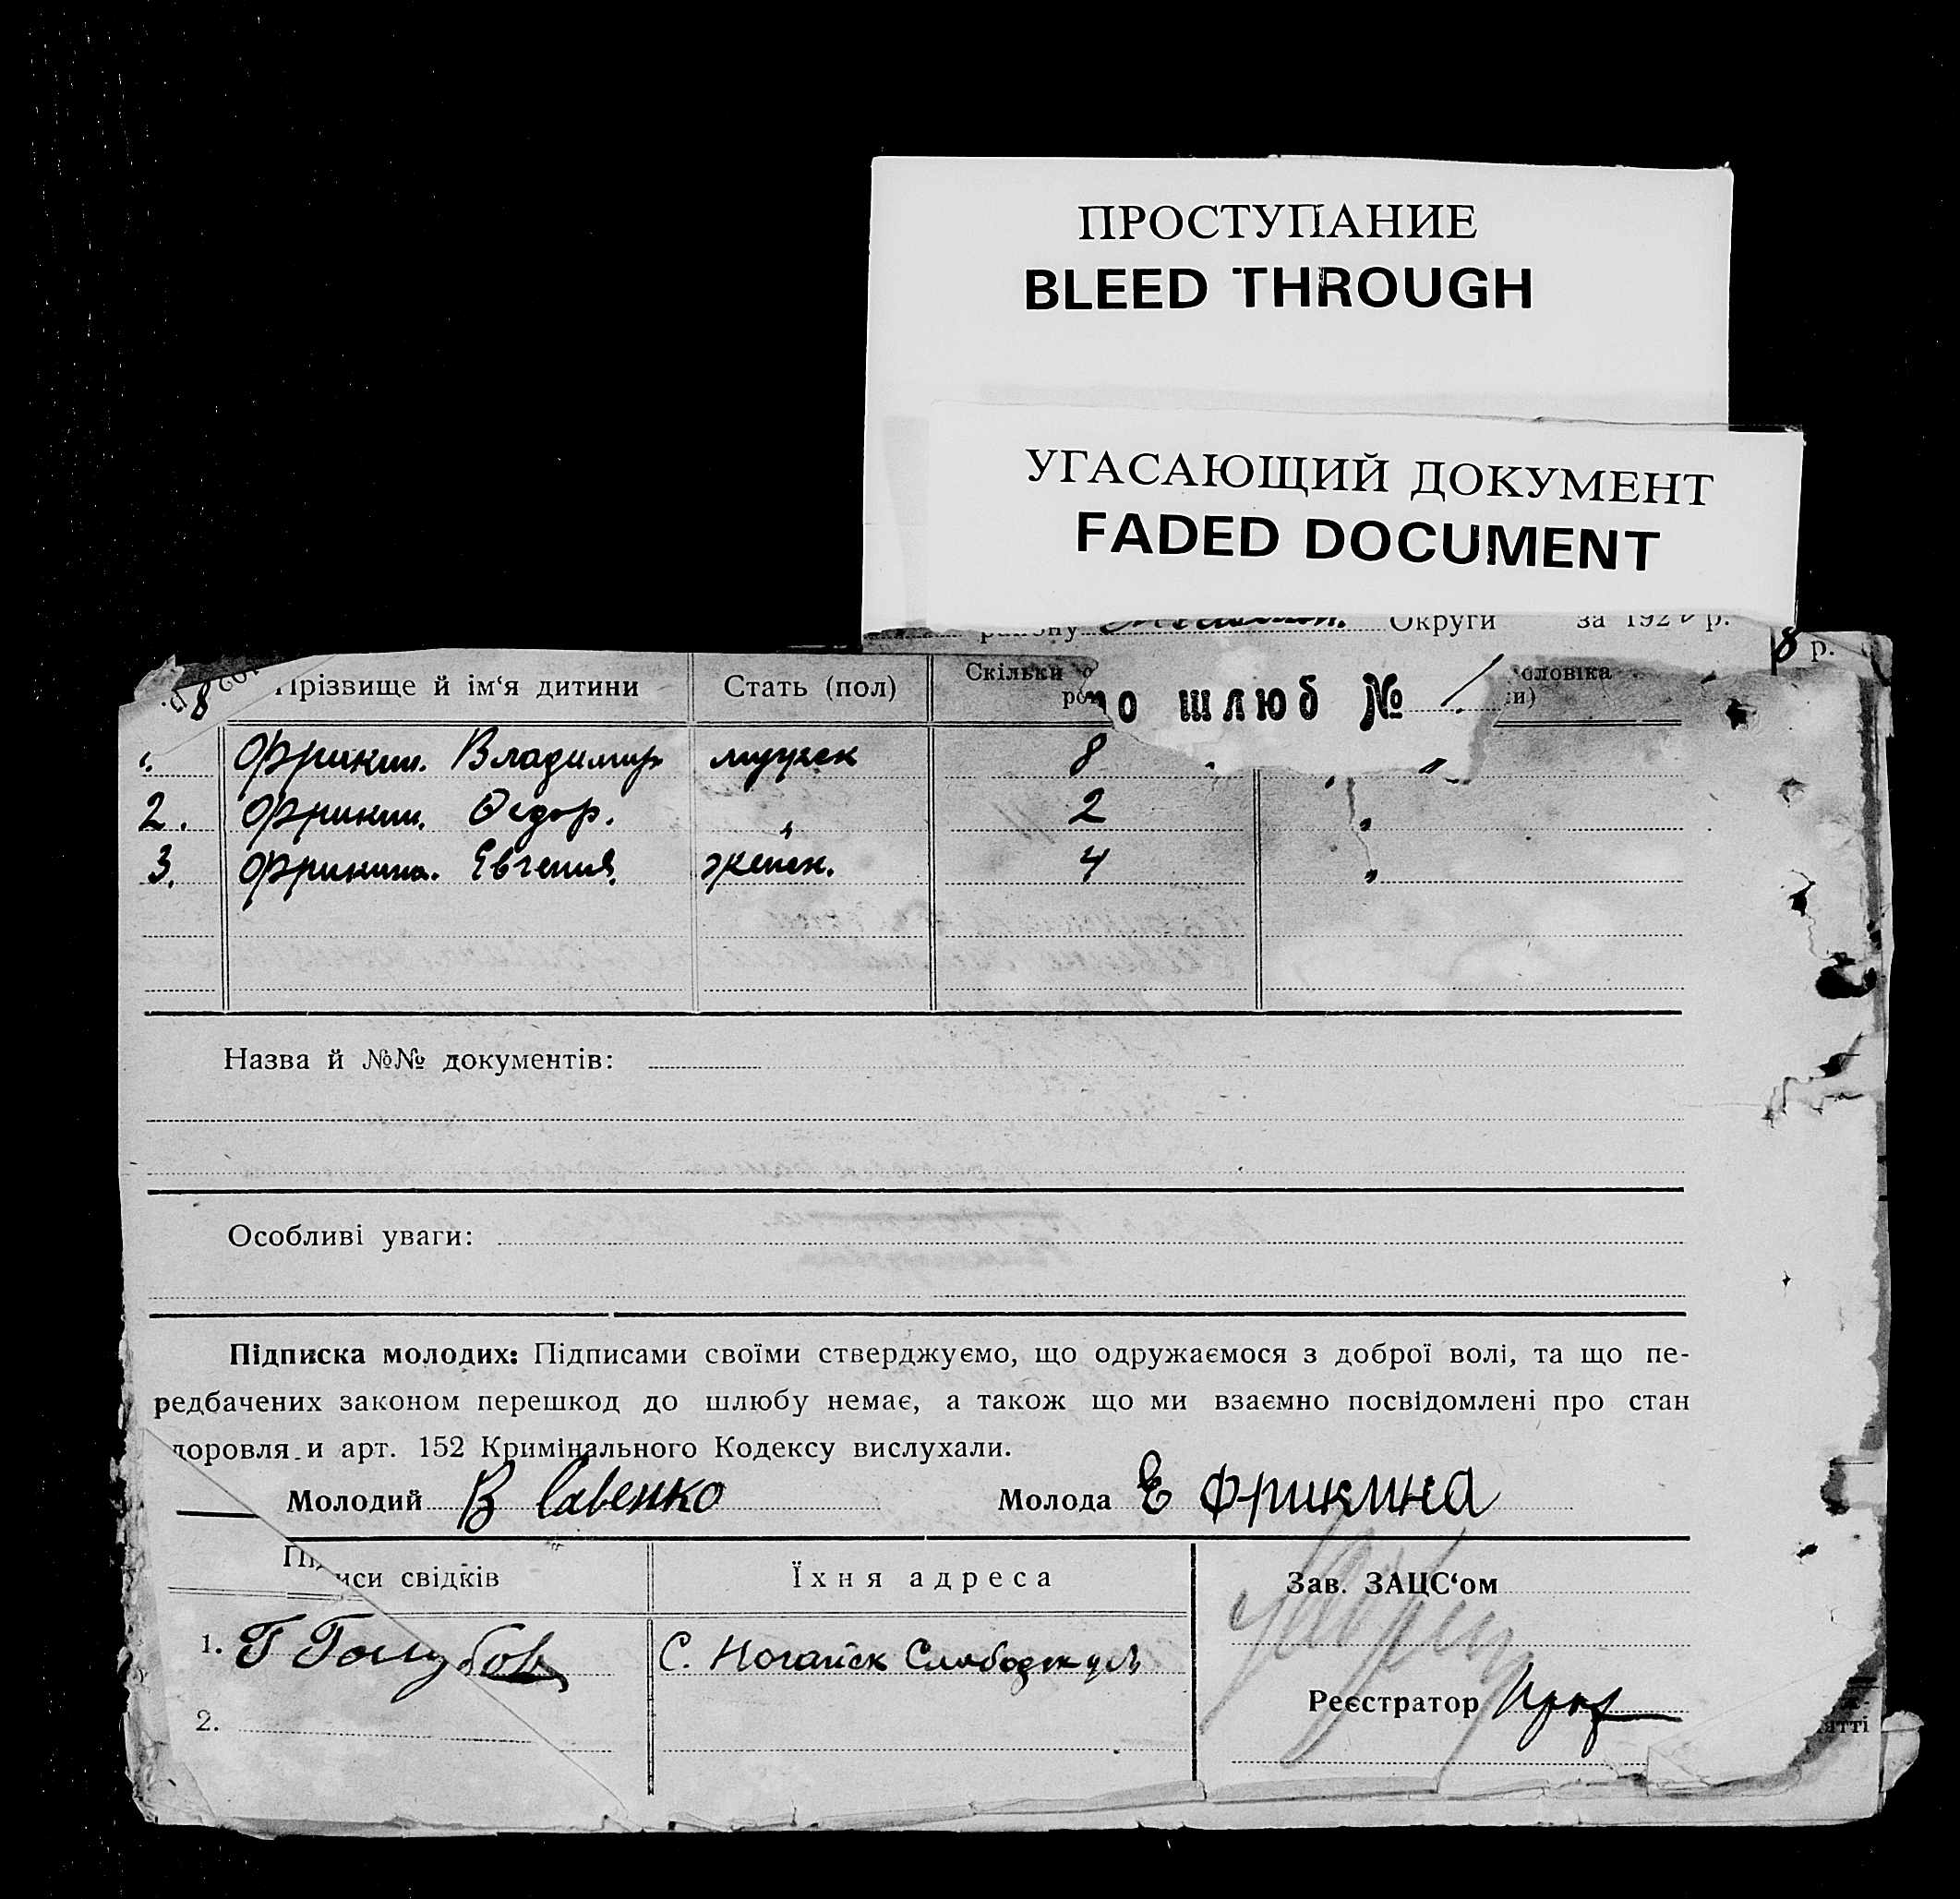 ПРОСТУПАНИЕ
BLEED THROUGH
УГАСАЮЩИЙ ДОКУМЕНТ
FADED DOCUMENT
району Округи за 192 р.
8 р.
8
Прізвище й ім‘я дитини Стать (пол) Скільки
шлюб №
1. Фрикин. Владимир мужск 8 "
2. Фрикин. Федор. " 2 "
3. Фрикина. Евгения. женск. 4 "
Назва й №№ документів:
Особливі уваги:
Підписка молодих: Підписами своїми стверджуємо, що одружаємося з доброї волі, та що пе-
редбачених законом перешкод до шлюбу немає, а також що ми взаємно посвідомлені про стан
доровля и арт. 152 Кримінального Кодексу вислухали.
Молодий В Савенко Молода Е Фрикина
Підписи свідків Їхня адреса Зав. ЗАЦС‘ом
1. Г Голубов С. Ногайск
Реєстратор
2.